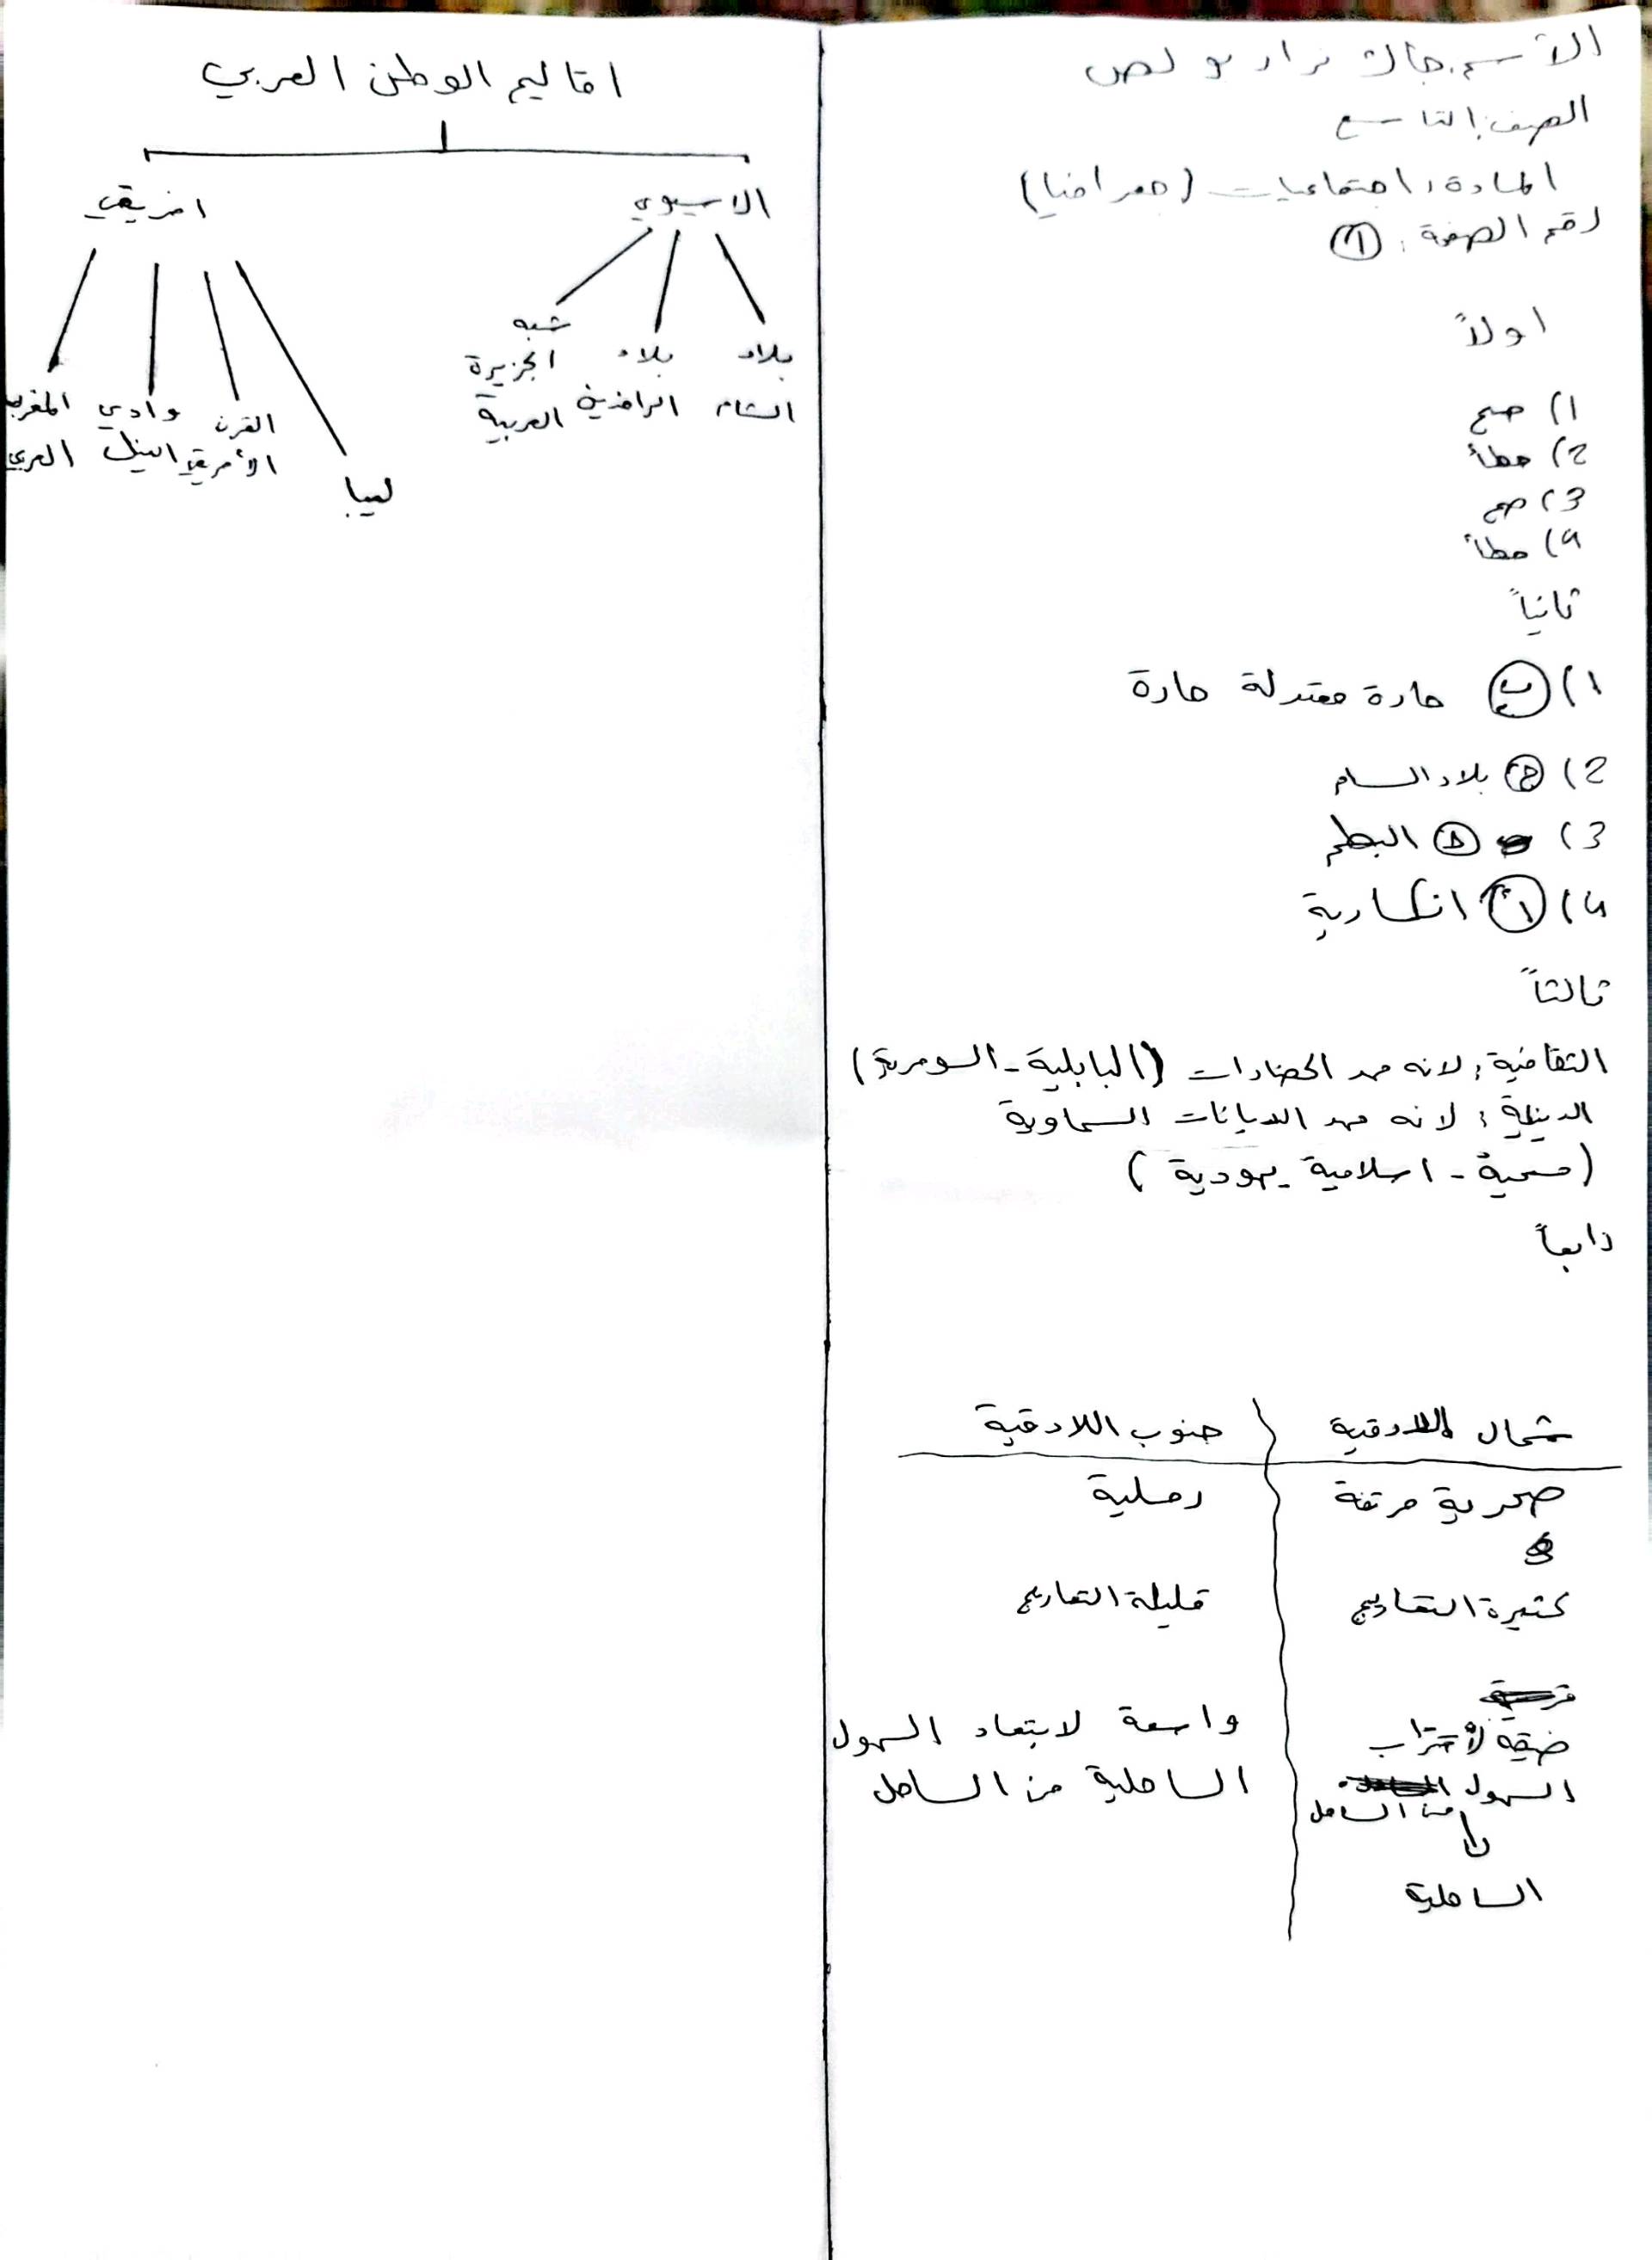 الصف: التاسع
المادة: اجتماعيات (جغرافيا)
رقم الصفحة: (1)
اولاً
1) صح
2) خطأ
3) صح
4) خطأ
ثانياً
1) ب حارة معتدلة حارة
2) بلاد الشام
3) البطم
4) انكسارية
ثالثاً
الثقافية: لانه مهد الحضارات (البابلية - السومرية)
الدينية: لانه مهد الديانات السماوية
(مسحية - اسلامية - يهودية)
رابعاً
شمال اللادقية
جنوب اللادقية
صخرية مرتفة
رملية
كثيرة التعاريج
قليلة التعاريج
ضيقة لأقتراب
السهول
من الساحل
الساحلية
واسعة لابتعاد السهول
الساحلية من الساحل
اقاليم الوطن العربي
الاسيوي
افريقي
بلاد
الشام
بلاد
الرافدين
شبه
الجزيرة
العربية
ليبيا
القرن
الأفريقي
وادي
النيل
المغرب
العربي